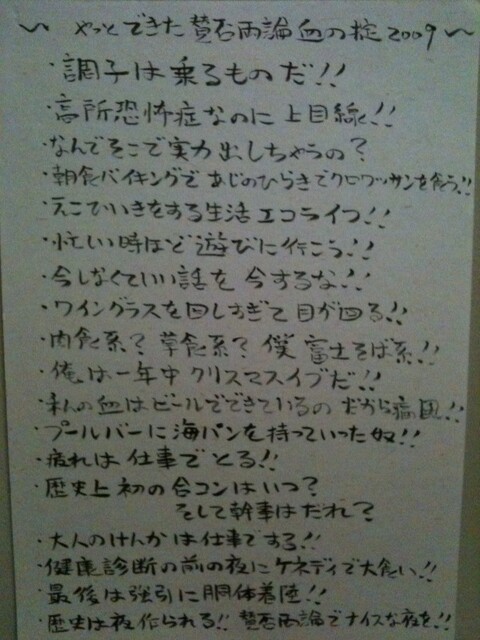 〜 やっとできた 賛否両論 血の掟 2009 〜
・調子は乗るものだ!!
・高所恐怖症なのに 上目線!!
・なんでそこで実力出しちゃうの?
・朝食バイキングで あじのひらきでクロワッサンを食う!!
・えこひいきをする生活 エコライフ!!
・忙しい時ほど 遊びに行こう!!
・今しなくていい話を 今するな!!
・ワイングラスを回しすぎて 目が回る!!
・肉食系? 草食系? 僕 富士そば系!!
・俺は一年中 クリスマスイブだ!!
・私の血はビールでできているの だから痛風!!
・プールバーに 海パンを持っていった奴!!
・疲れは 仕事で とる!!
・歴史上初の合コンは いつ?
そして幹事は だれ?
・大人のけんかは仕事でする!!
・健康診断の前の夜に ケネディで大食い!!
・最後は強引に 胴体着陸!!
・歴史は夜作られる!! 賛否両論でナイスな夜を!!